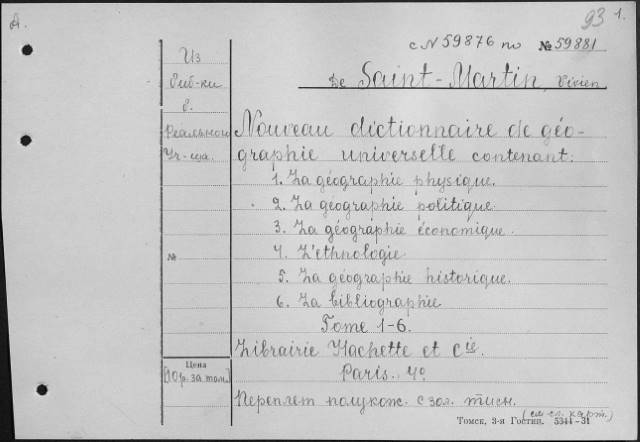 А.
93 1.
с N 59876 по № 59881
Из
биб-ки
б.
Реального
Уч-ща.
De Saint-Martin, Vivien
Nouveau dictionnaire de géo-
graphie universelle contenant:
1. La géographie physique.
2. La géographie politique
3. La géographie économique.
№
4. L'ethnologie
5. La géographie historique.
6. La bibliographie
Tome 1-6.
Librairie Hachette et Cie.
Цена
[10 р. за том.]
Paris. 4°
Переплет полукож. с зол. тисн.
(см. сл. карт.)
Томск, 3-я Гостип. 5344-31